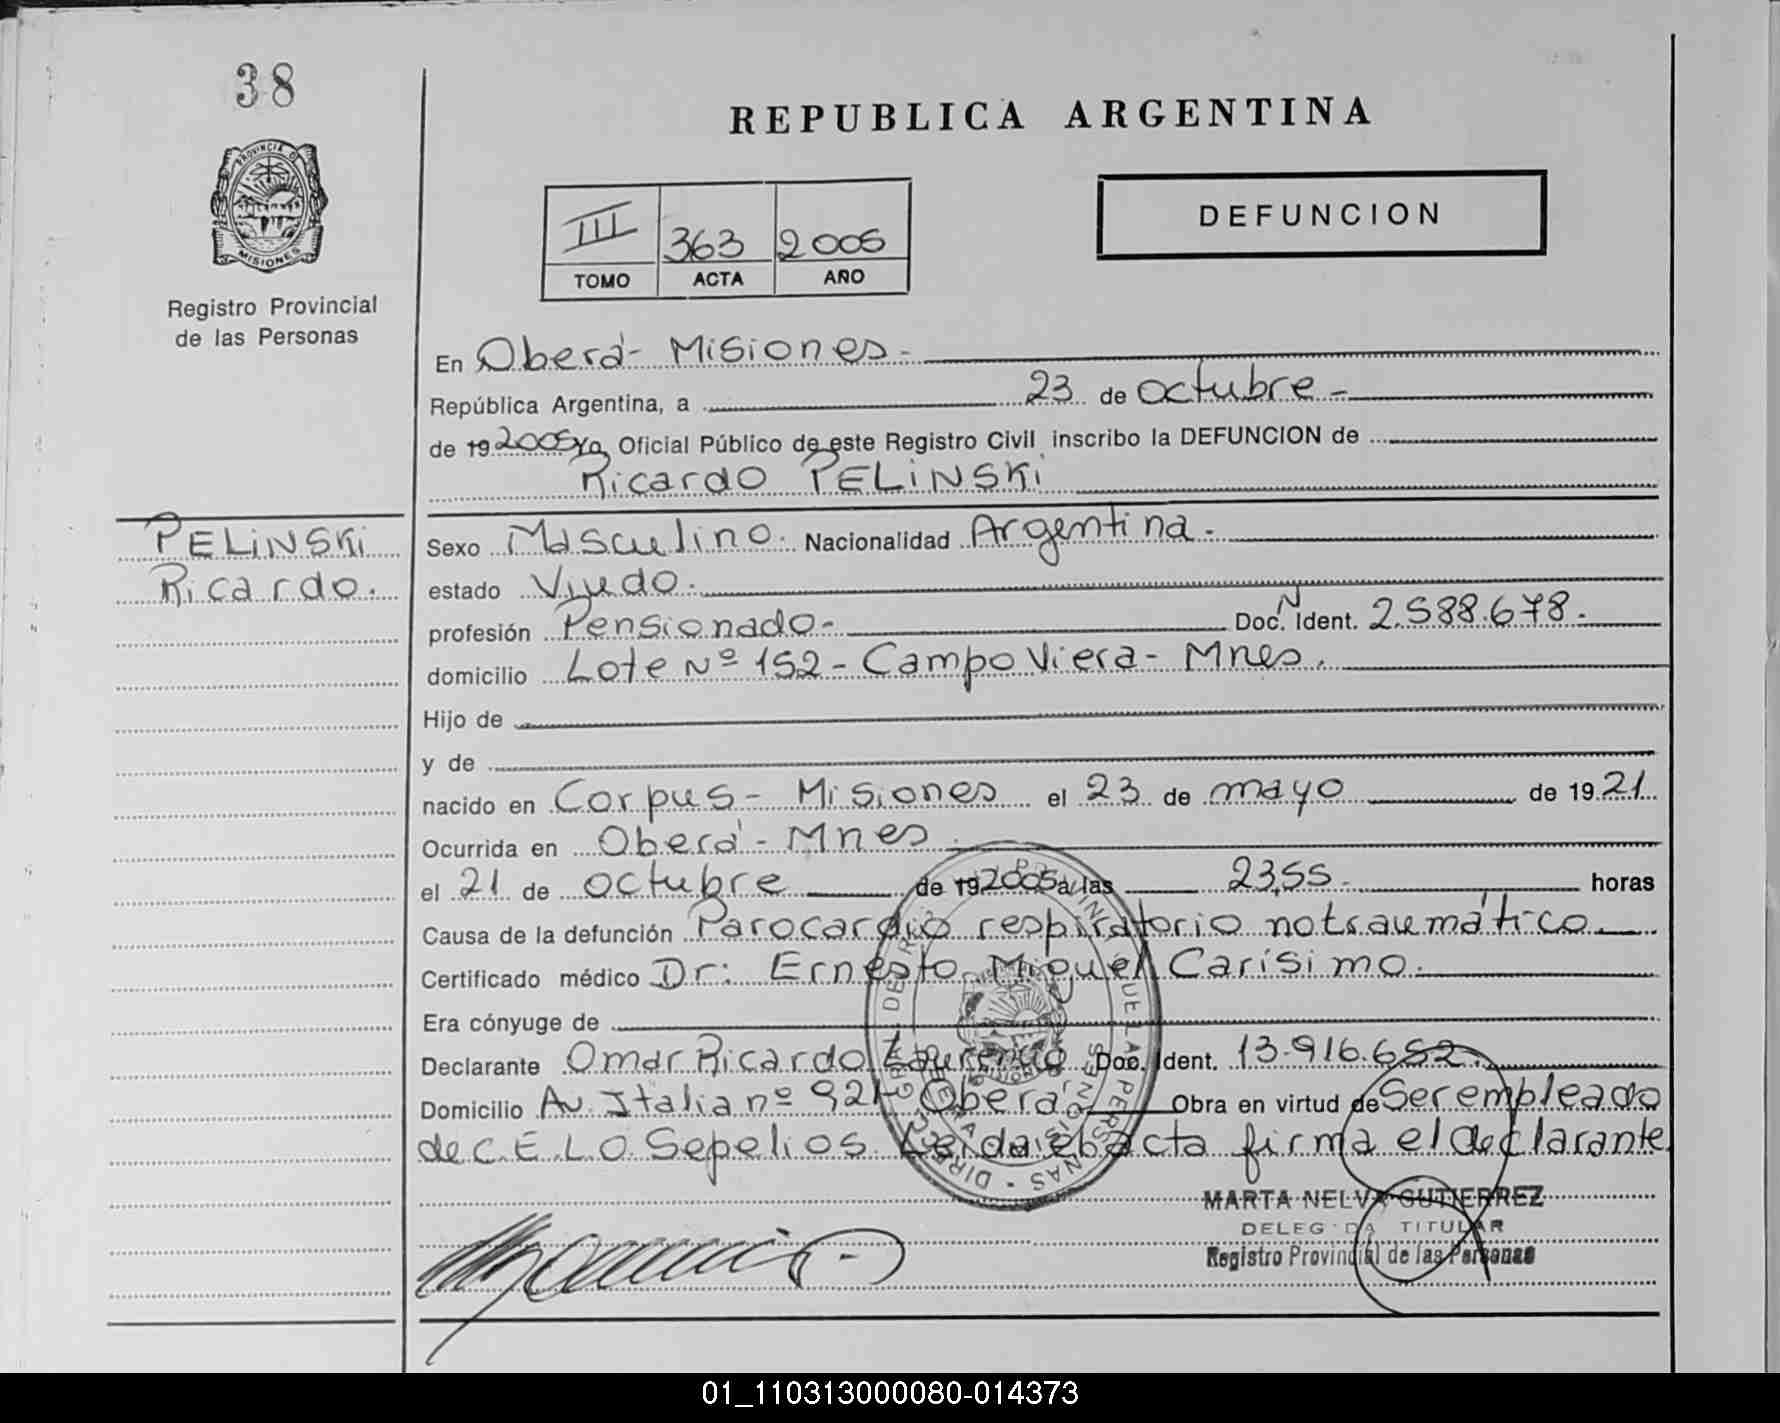 38
PROVINCIA DE
MISIONES
Registro Provincial
de las Personas
REPUBLICA ARGENTINA
III 363 2005
TOMO ACTA AÑO
DEFUNCION
En Oberá - Misiones -
República Argentina, a 23 de octubre -
de 19 2005 Yo, Oficial Público de este Registro Civil inscribo la DEFUNCION de
Ricardo PELINSKI
PELINSKI
Ricardo.
Sexo Masculino. Nacionalidad Argentina.
estado Viudo.
profesión Pensionado - Doc. N Ident. 2.588.678.
domicilio Lote Nº 152 - Campo Viera - Mnes.
Hijo de
y de
nacido en Corpus - Misiones el 23 de mayo de 19 21
Ocurrida en Oberá - Mnes.
el 21 de octubre de 19 2005 a las 23,55. horas
Causa de la defunción Parocardio respiratorio notraumático.
Certificado médico Dr: Ernesto Miguel Carísimo.
Era cónyuge de
Declarante Omar Ricardo Doc. Ident. 13.916.652.
Domicilio Av. Italia nº 921 - Oberá - Obra en virtud de Ser empleado
de C.E.L.O. Sepelios. Leída el acta firma el declarante
MARTA NELVA GUTIERREZ
DELEGADA TITULAR
Registro Provincial de las Personas
01_110313000080-014373